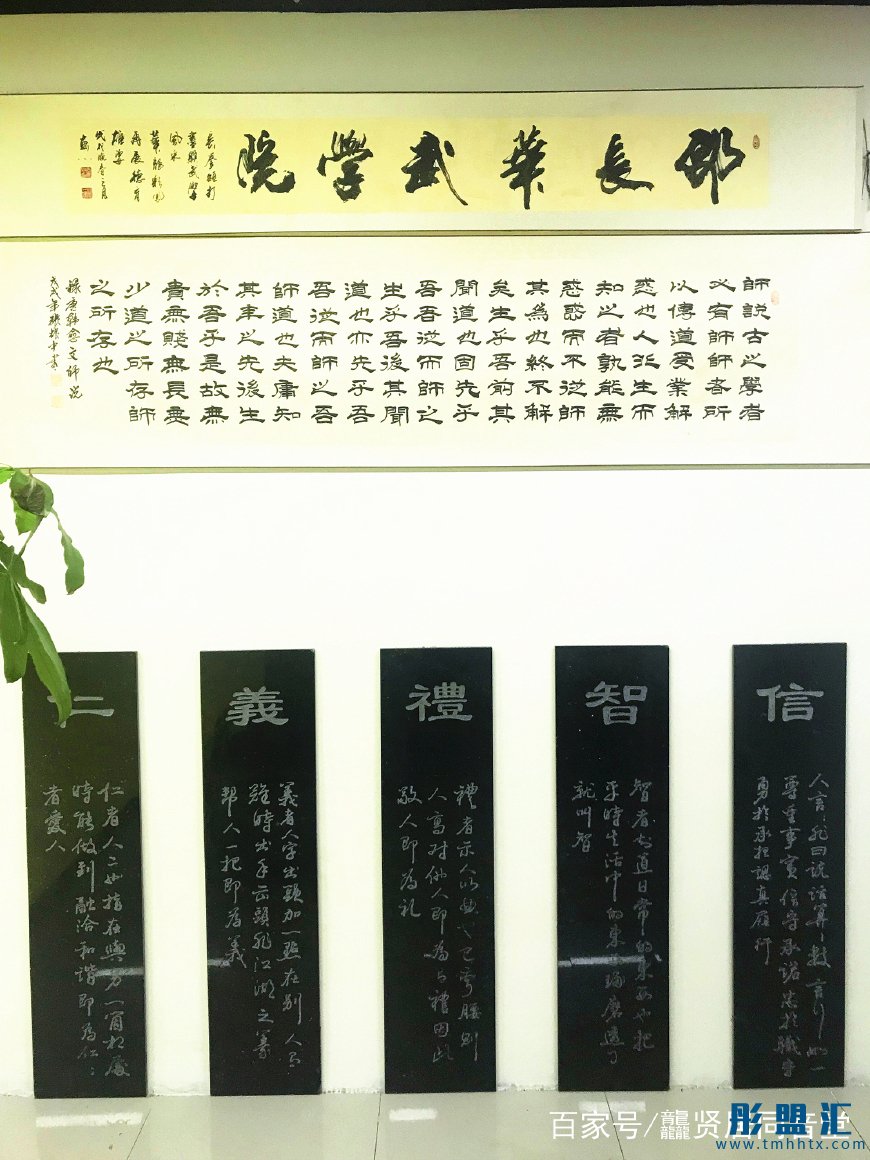 邵長華武學院
師說古之學者
必有師師者所
以傳道受業解
惑也人非生而
知之者孰能無
惑惑而不從師
其為也終不解
矣生乎吾前其
聞道也固先乎
吾吾從而師之
生乎吾後其聞
道也亦先乎吾
吾從而師之吾
師道也夫庸知
其年之先後生
於吾乎是故無
貴無賤無長無
少道之所存師
之所存也
錄唐韓愈文師說
仁
仁者人二也指在與另一個相處
時能做到融洽和諧即為仁仁
者愛人
義
義者人字出頭加一點在別人有
難時出手出頭非江湖之義
幫人一把即為義
禮
禮者示人以曲也己彎腰則
人高對他人即為有禮因此
敬人即為礼
智
智者知道日常的東西也把
平時生活中的東西琢磨透了
就叫智
信
人言非曰說話算數言行如一
尊重事實信守承諾忠於職守
勇於承担認真履行
百家号/龘贤居同善堂
彤盟汇
www.tmhhtx.com